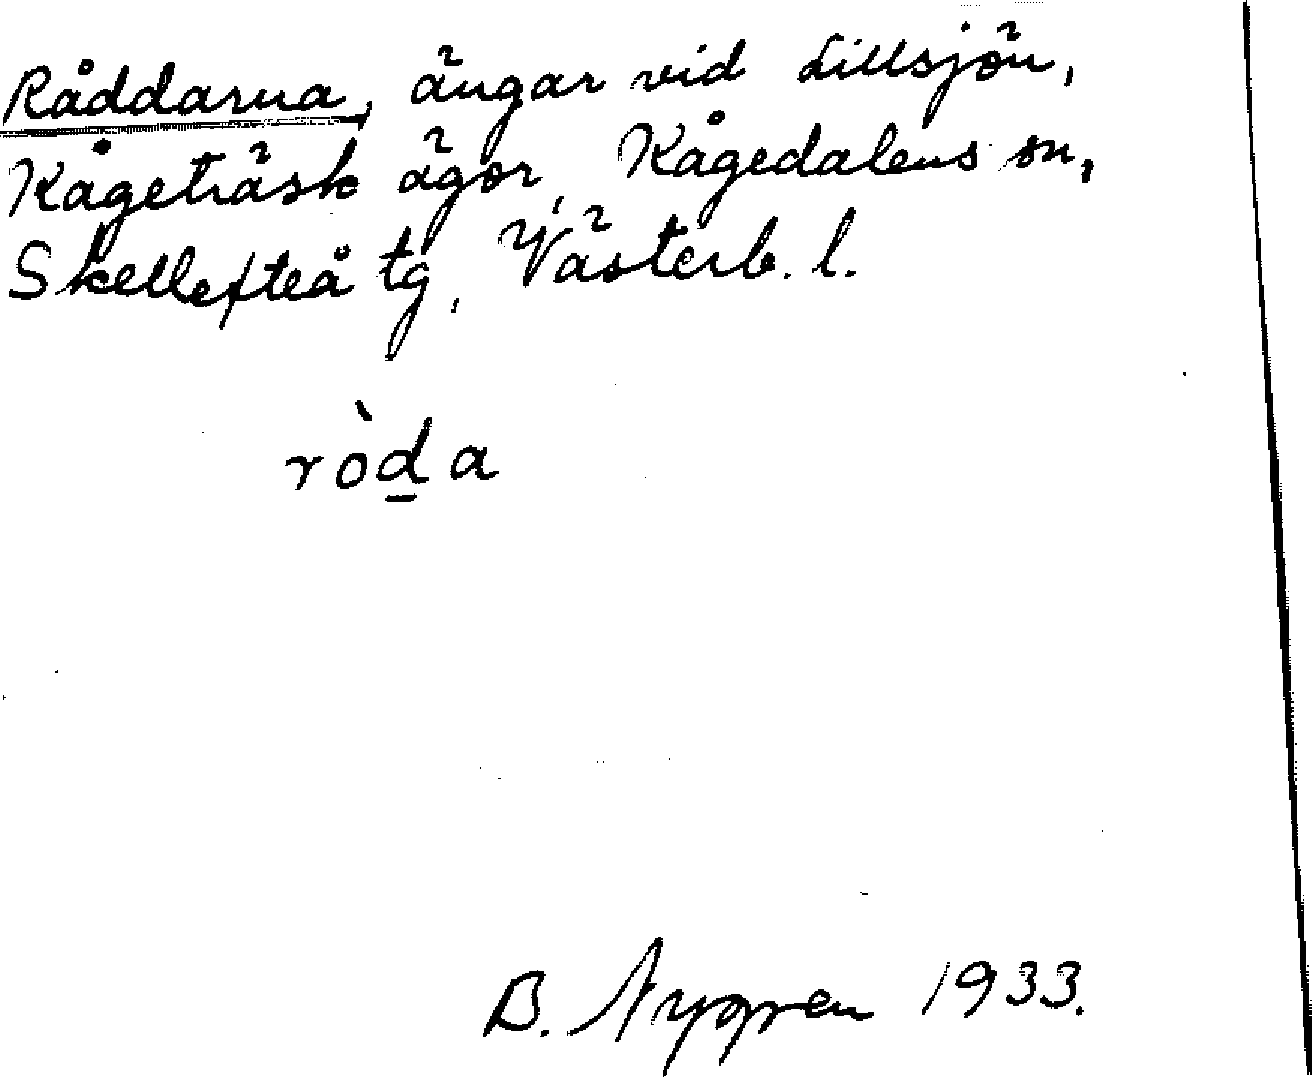 Råddarna, ängar vid Lillsjön,
Kågeträsk ägor, Kågedalens sn,
Skellefteå tg, Västerb. l.
ròd̲a
B. Nygren 1933.